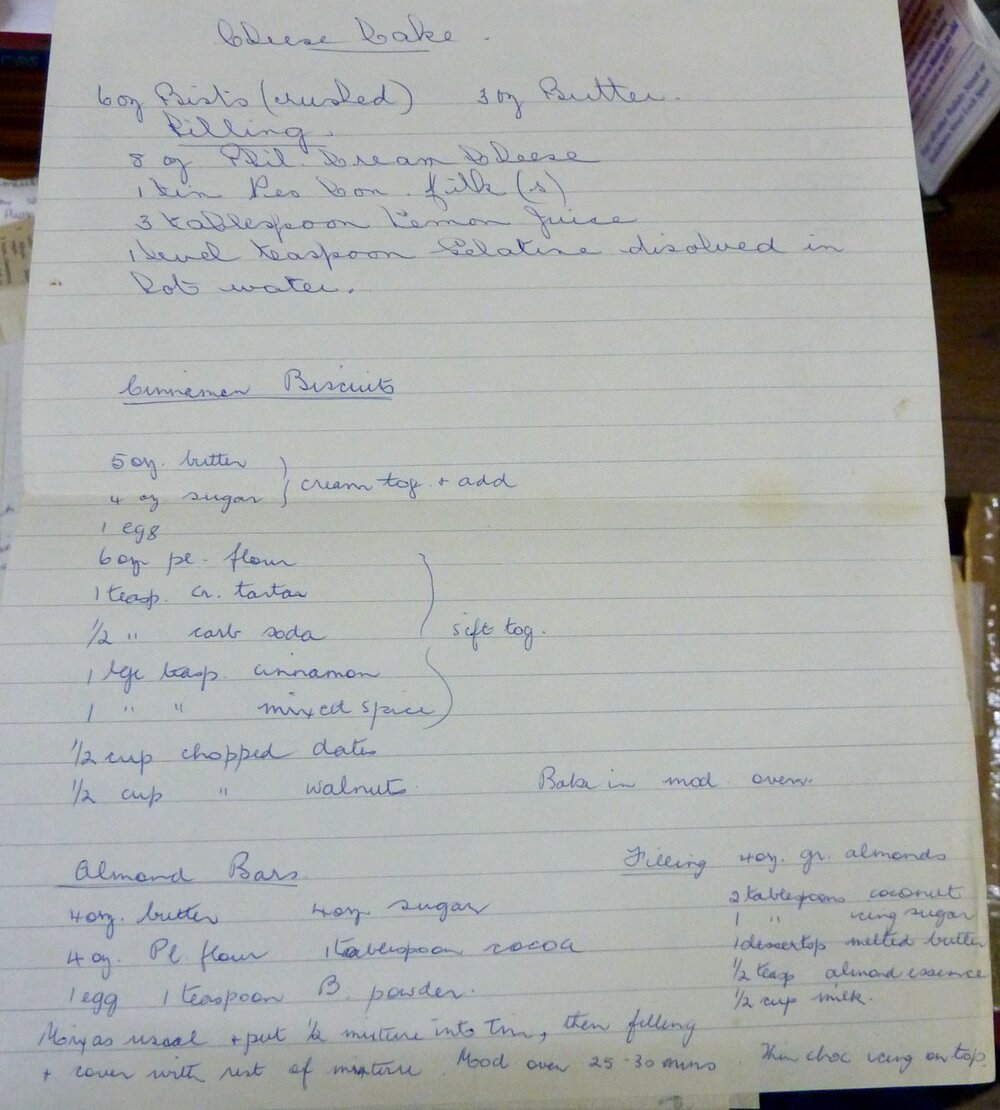 Cheese Cake.
6 oz Bists (crushed) 3 oz Butter.
Filling.
8 oz Phil Cream Cheese
1 tin Con. (s)
3 tablespoon Lemon Juice
1 level teaspoon Gelatine disolved in
hot water.
Cinnamon Biscuits
5 oz. butter
4 oz sugar } cream tog. + add
1 egg
6 oz pl. flour
1 teasp. cr. tartar
1/2 " carb soda
sift tog.
1 lge teasp cinnamon
1 " " mixed spice
1/2 cup chopped dates
1/2 cup " walnuts. Bake in mod. oven.
Almond Bars
4 oz. butter 4 oz sugar
4 oz. Pl flour 1 tablespoon cocoa
1 egg 1 teaspoon B. powder.
Filling 4 oz. gr. almonds
2 tablespoons coconut
1 " icing sugar
1 dessertsp melted butter
1/2 teasp almond essence
1/2 cup milk.
as usual + put 1/2 mixture into Tin, then filling
+ cover with rest of mixture. Mod oven 25-30 mins Thin choc icing on top.